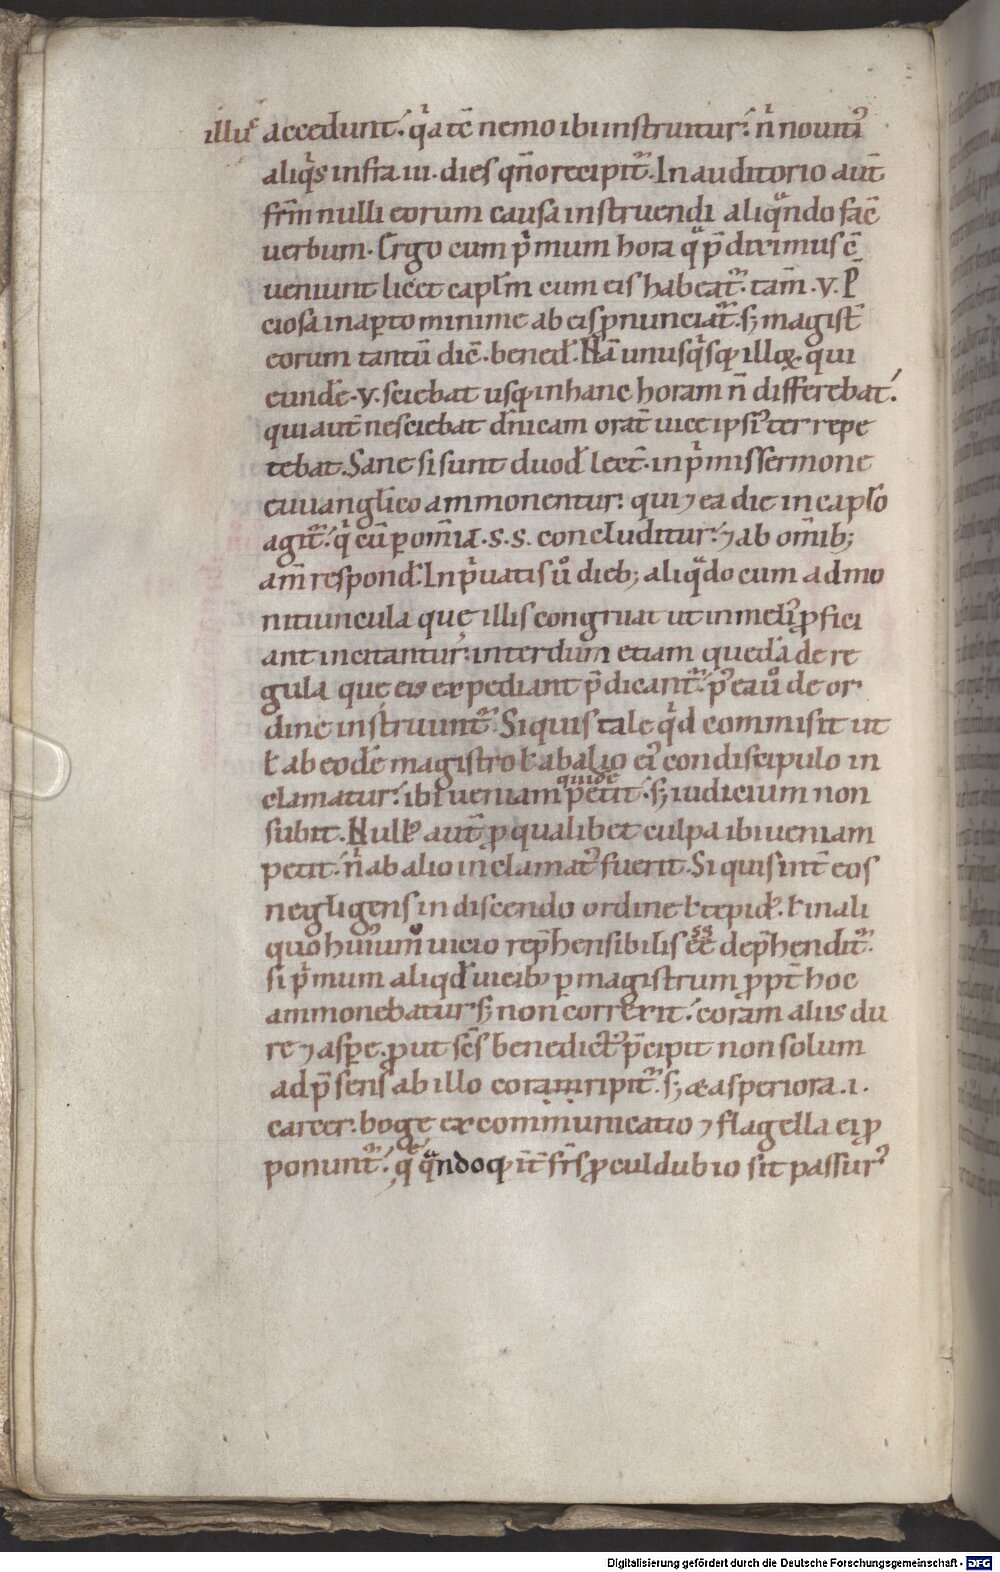 illuc accedunt. qꝛ́a tc̄ nemo ibi instruitur. n̄ novitiꝰ
aliqͥs infra .iii. dies qn̄o recipit᷑. In auditorio aut̄
frm̄ nulli eorum causa instruendi aliqᵃndo facē
verbum. Ergo cum pͥmum hora qᵃ p̄diximus c̄
veniunt licet capl̄m cum eis habeat᷑. tam̄ .v. P̄
ciosa in aꝑto minime ab eis ꝓnunciat᷑. sꝫ magist̄
eorum tantū dic̄. bened̄. Nā unusqͥsqꝫ illoꝝ. qui
eundē .v. sciebat usqꝫ in hanc horam n̄ differebat.
qui aut̄ nesciebat dn̄icam orat̄ vice ipsiꝰ ter repe
tebat. Sane si sunt duod̄ lect̄. in pͥmis sermone
euuangl̄ico ammonentur. qui ⁊ ea die in caplo̅
agit᷑. qͥ cū ꝑ om̄ia .s.s. concluditur. ⁊ ab om̄ibꝫ
am̄ respond̄. In pͥvatis ů diebꝫ aliqᵃdo cum admo
nitiuncula que illis congruat ut in meliꝰ ꝓfici
ant incitantur. interdum etiam quedā de re
gula que eis expediant p̄dicant᷑. p̄ ea ů de or
dine instruunt᷑. Si quis tale qͥd commisit ut
ł ab eodē magistro ł ab alio eiꝰ condiscipulo in
clamatur. ibi veniam quidē petit. sꝫ iudicium non
subit. Nullꝰ aut̄ ꝓ qualibet culpa ibi veniam
petit. n̄ ab alio inclamatꝰ fuerit. Si quis int̄ eos
negligens in discendo ordine ł tepidꝰ. ł in ali
quo huiꝰmoͥ vicio rep̄hensibilis ēē dep̄hendit᷑.
si pͥmum aliqd̄ vicibꝰ ꝑ magistrum ꝓpt̄ hoc
ammonebatur sꝫ non correxit. coram aliis du
re ⁊ asꝑe. ꝓut sc̄s benedictꝰ p̄cipit non solum
ad p̄sens ab illo coram ripit᷑. sꝫ ⁊ asperiora .i.
carcer. bogę excommunicatio ⁊ flagella ei ꝓ
ponunt᷑. qᵉ qᵃndoqꝫ int̄ frs̄ ꝓculdubio sit passurꝰ
Digitalisierung gefördert durch die Deutsche Forschungsgemeinschaft - DFG